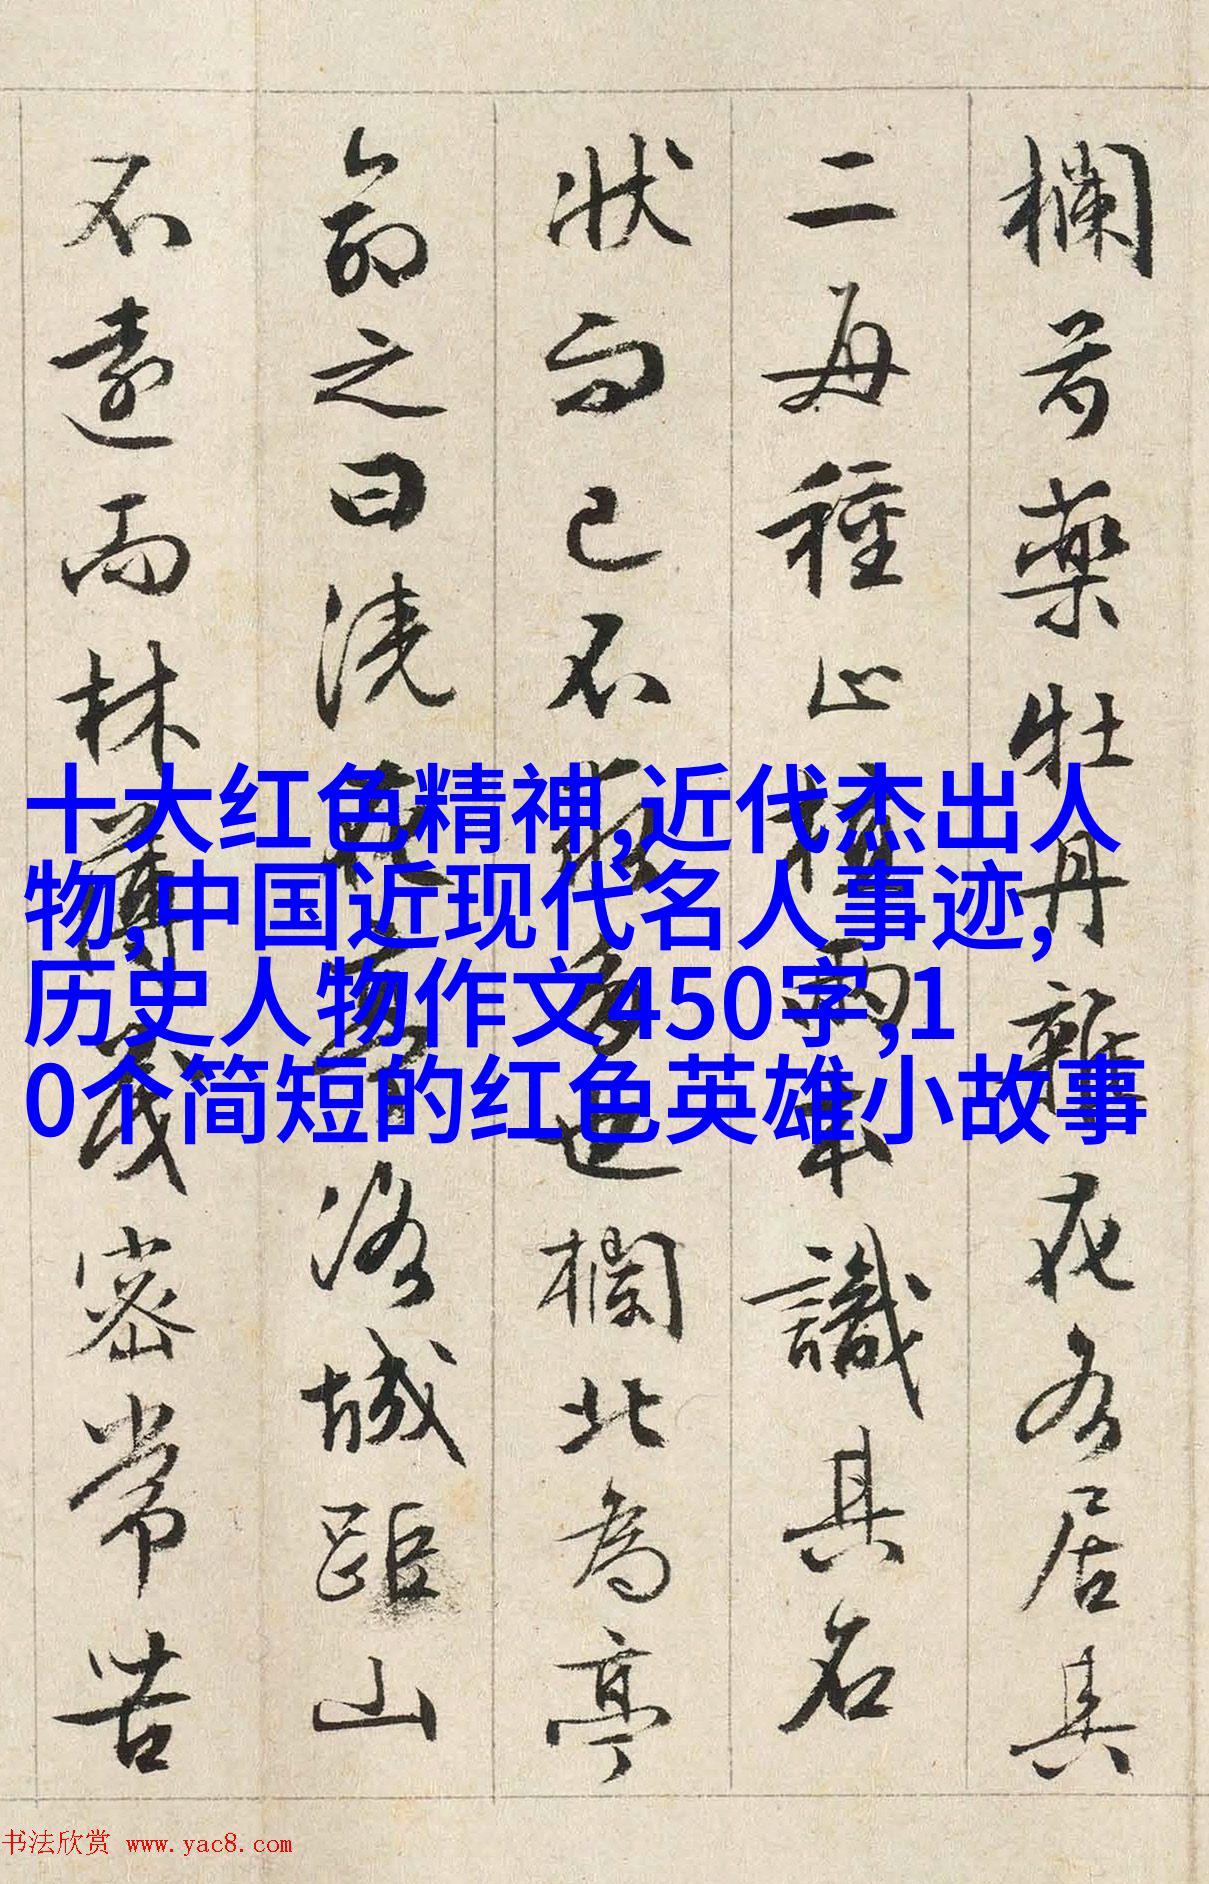 欄芍藥牡丹雜花各居其
二每種止植兩本識其名
狀而已不多也欄北為亭
命之曰澆花亭洛城距山
不遠而林薄茂密常苦
十大红色精神,近代杰出人
物,中国近现代名人事迹,
历史人物作文450字,1
0个简短的红色英雄小故事
书法欣赏 www.yac8.com